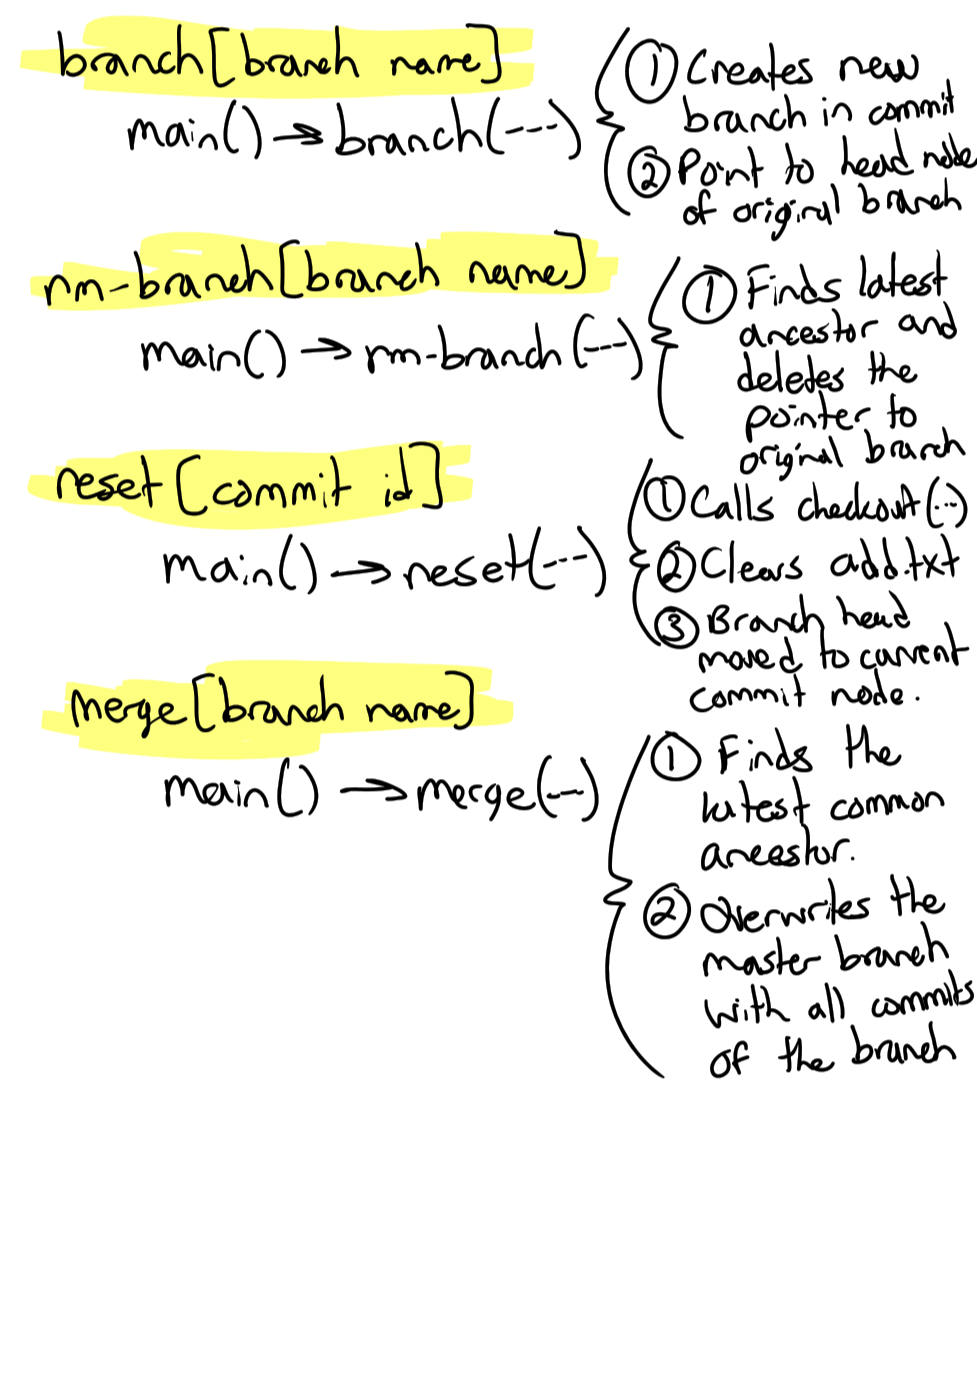 branch[branch name]
main() → branch(---)
① Creates new
branch in commit
② Point to head node
of original branch
rm-branch[branch name]
main() → rm-branch(---)
① Finds latest
ancestor and
deletes the
pointer to
original branch
reset[commit id]
main() → reset(---)
① Calls checkout(...)
② Clears add.txt
③ Branch head
moved to current
commit node.
merge[branch name]
main() → merge(---)
① Finds the
latest common
ancestor.
② Overwrites the
master branch
with all commits
of the branch